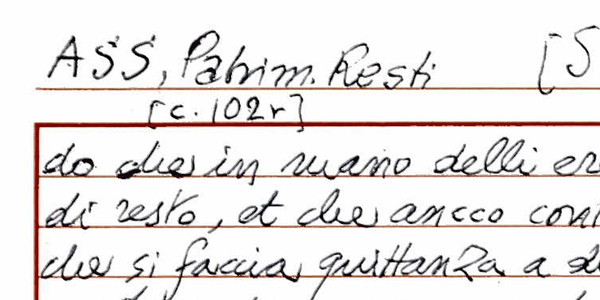 ASS, Patrim. Resti [S
[c. 102r]
do che in mano delli er
di resto, et che ancco cont
che si faccia quittanza a d